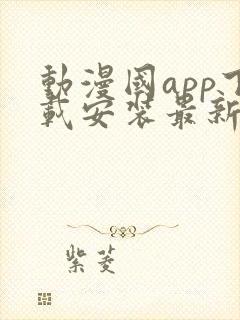 動漫國app下
載安裝最新
紫菱